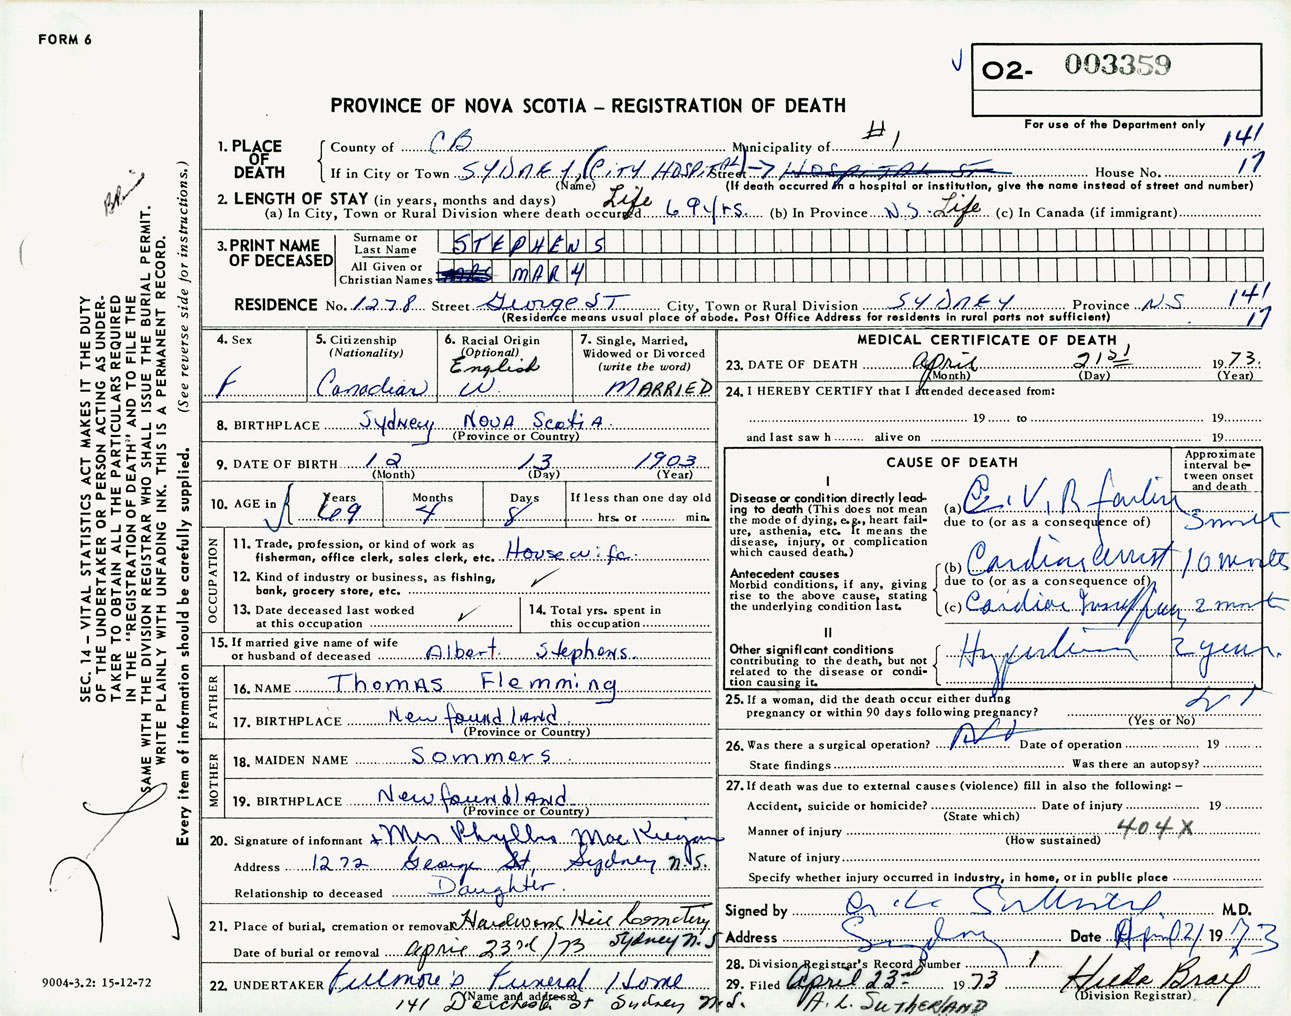 FORM 6
O2- 003359
PROVINCE OF NOVA SCOTIA – REGISTRATION OF DEATH
For use of the Department only
1. PLACE OF DEATH
County of CB Municipality of #1 141
If in City or Town SYDNEY (CITY HOSPITAL) Street House No. 17
(Name) (If death occurred in a hospital or institution, give the name instead of street and number)
2. LENGTH OF STAY (in years, months and days)
(a) In City, Town or Rural Division where death occurred Life 69 yrs. (b) In Province N.S. Life (c) In Canada (if immigrant)
3. PRINT NAME OF DECEASED
Surname or Last Name STEPHENS
All Given or Christian Names MARY
RESIDENCE No. 1278 Street George ST City, Town or Rural Division SYDNEY Province N.S 141
(Residence means usual place of abode. Post Office Address for residents in rural parts not sufficient) 17
4. Sex F
5. Citizenship (Nationality) Canadian
6. Racial Origin (Optional) English W.
7. Single, Married, Widowed or Divorced (write the word) MARRIED
8. BIRTHPLACE Sydney NOVA ScotiA
(Province or Country)
9. DATE OF BIRTH 12 13 1903
(Month) (Day) (Year)
10. AGE in Years 69 Months 4 Days 8 If less than one day old hrs. or min.
OCCUPATION
11. Trade, profession, or kind of work as fisherman, office clerk, sales clerk, etc. Housewife
12. Kind of industry or business, as fishing, bank, grocery store, etc.
13. Date deceased last worked at this occupation
14. Total yrs. spent in this occupation
15. If married give name of wife or husband of deceased Albert Stephens
FATHER
16. NAME Thomas Flemming
17. BIRTHPLACE Newfoundland
(Province or Country)
MOTHER
18. MAIDEN NAME Sommers
19. BIRTHPLACE Newfoundland
(Province or Country)
20. Signature of informant Mrs Phyllis MacKeigan
Address 1272 George St, Sydney N.S.
Relationship to deceased Daughter
21. Place of burial, cremation or removal Hardwood Hill Cemetery
Date of burial or removal April 23rd/73 Sydney N.S
22. UNDERTAKER Fillmore's Funeral Home
(Name and address)
141 Dorchester St Sydney N.S.
MEDICAL CERTIFICATE OF DEATH
23. DATE OF DEATH April 21st 1973.
(Month) (Day) (Year)
24. I HEREBY CERTIFY that I attended deceased from:
19 ... to 19
and last saw h alive on 19
CAUSE OF DEATH
Approximate interval between onset and death
I
Disease or condition directly leading to death (This does not mean the mode of dying, e.g., heart failure, asthenia, etc. It means the disease, injury, or complication which caused death.)
(a)
due to (or as a consequence of)
Antecedent causes
Morbid conditions, if any, giving rise to the above cause, stating the underlying condition last.
(b) Cardiac arrest
due to (or as a consequence of)
(c) Cardiac
II
Other significant conditions contributing to the death, but not related to the disease or condition causing it.
Hypertension 2 years.
25. If a woman, did the death occur either during pregnancy or within 90 days following pregnancy?
(Yes or No)
26. Was there a surgical operation? No Date of operation 19
State findings Was there an autopsy?
27. If death was due to external causes (violence) fill in also the following: –
Accident, suicide or homicide? Date of injury 19
(State which)
Manner of injury 404X
(How sustained)
Nature of injury
Specify whether injury occurred in Industry, in home, or in public place
Signed by M.D.
Address Sydney Date April 21 1973
28. Division Registrar's Record Number 1
29. Filed April 23rd 1973 Hilda Brax
(Division Registrar)
A. L. SUTHERLAND
SEC. 14 – VITAL STATISTICS ACT MAKES IT THE DUTY
OF THE UNDERTAKER OR PERSON ACTING AS UNDERTAKER TO OBTAIN ALL THE PARTICULARS REQUIRED
IN THE "REGISTRATION OF DEATH" AND TO FILE THE
SAME WITH THE DIVISION REGISTRAR WHO SHALL ISSUE THE BURIAL PERMIT.
WRITE PLAINLY WITH UNFADING INK. THIS IS A PERMANENT RECORD.
Every item of information should be carefully supplied. (See reverse side for instructions.)
9004-3.2: 15-12-72